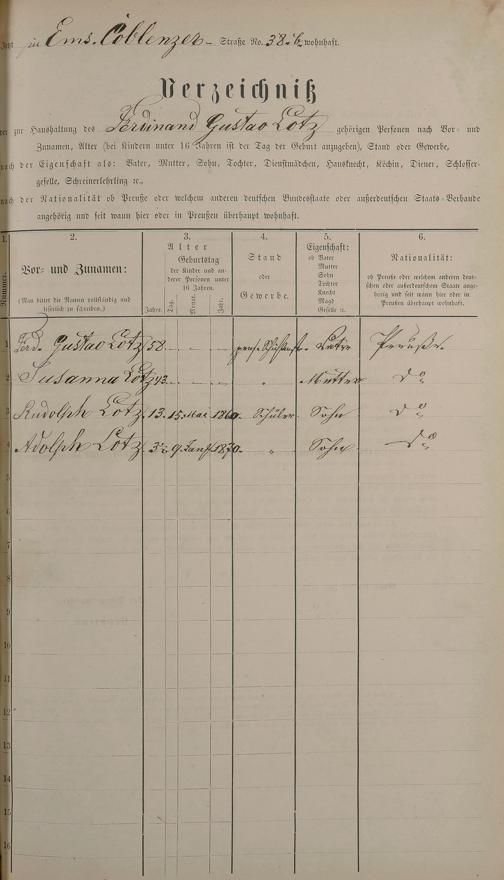 Jetzt in Ems. Coblenzer – Straße No. 38.b. wohnhaft.
Verzeichniß
der zur Haushaltung des Ferdinand Gustav Lotz gehörigen Personen nach Vor- und
Zunamen, Alter (bei Kindern unter 16 Jahren ist der Tag der Geburt anzugeben), Stand oder Gewerbe,
nach der Eigenschaft als: Vater, Mutter, Sohn, Tochter, Dienstmädchen, Hausknecht, Köchin, Diener, Schlosser-
geselle, Schreinerlehrling ꝛc.,
nach der Nationalität ob Preuße oder welchem anderen deutschen Bundesstaate oder außerdeutschen Staats-Verbande
angehörig und seit wann hier oder in Preußen überhaupt wohnhaft.
1. 2. 3. 4. 5. 6.
Nummer.
Vor- und Zunamen:
(Man bittet die Namen vollständig und
leserlich zu schreiben.)
Alter
Geburtstag
der Kinder und an-
derer Personen unter
16 Jahren.
Jahre. Tag. Monat. Jahr.
Stand
oder
Gewerbe.
Eigenschaft:
ob Vater
Mutter
Sohn
Tochter
Knecht
Magd
Geselle ꝛc.
Nationalität:
ob Preuße oder welchem anderen deut-
schen oder außerdeutschen Staate ange-
hörig und seit wann hier oder in
Preußen überhaupt wohnhaft.
1 Ferd. Gustav Lotz 58. – – – Vater Preuße.
2 Susanna Lotz 43. – – – " Mutter do
3 Rudolph Lotz. 13. 15. Mai 1860. Schüler. Sohn do
4 Adolph Lotz. 3½ 9. 1870. " Sohn do
5
6
7
8
9
10
11
12
13
14
15
16